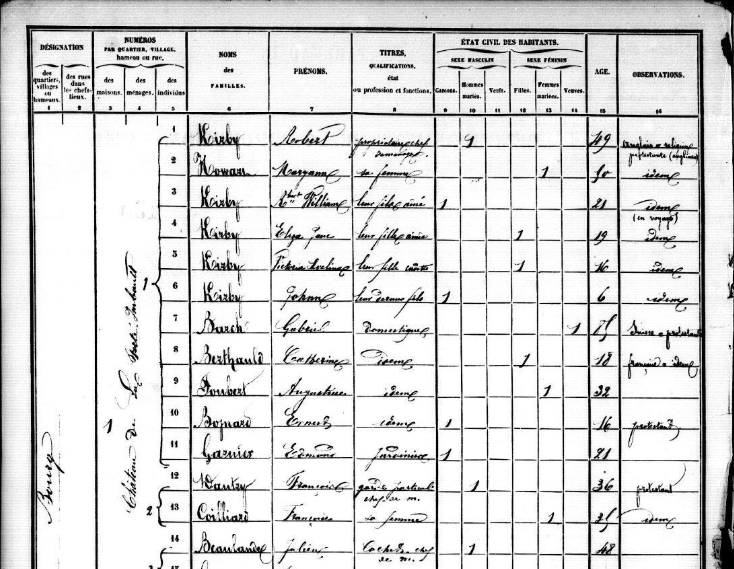 DÉSIGNATION
des quartiers, villages ou hameaux.
des rues dans les chefs-lieux.
NUMÉROS
PAR QUARTIER, VILLAGE, hameau ou rue.
des maisons.
des ménages.
des individus
NOMS des FAMILLES.
PRÉNOMS.
TITRES, QUALIFICATIONS, état ou profession et fonctions.
ÉTAT CIVIL DES HABITANTS.
SEXE MASCULIN
SEXE FÉMININ
Garçons.
Hommes mariés.
Veufs.
Filles.
Femmes mariées.
Veuves.
AGE.
OBSERVATIONS.
1 2 3 4 5 6 7 8 9 10 11 12 13 14 15 16
Bourg
1
Château de
1
1 Kirby Robert propriétaire chef de ménage 49
2 Howarn Maryann sa femme 1 50 idem
3 Kirby William leur fils ainé 1 21 idem
(en voyage)
4 Kirby Eliza Jane leur fille ainée 1 19 idem
5 Kirby Victoria leur fille 1 16 idem
6 Kirby John leur fils 1 6 idem
7 Barch domestique 1 Suisse protestante
8 Berthauld Catherine idem 1 18 idem
9 Foubert Augustine idem 1 32
10 Ernest idem 1 16 protestant
11 Garnier Edmond jardinier 1 21
2
12 François garde particulier chef de m. 1 36 protestant
13 Coilliard Françoise sa femme 1 35 idem
14 Julien Cocher chef de m. 1 48